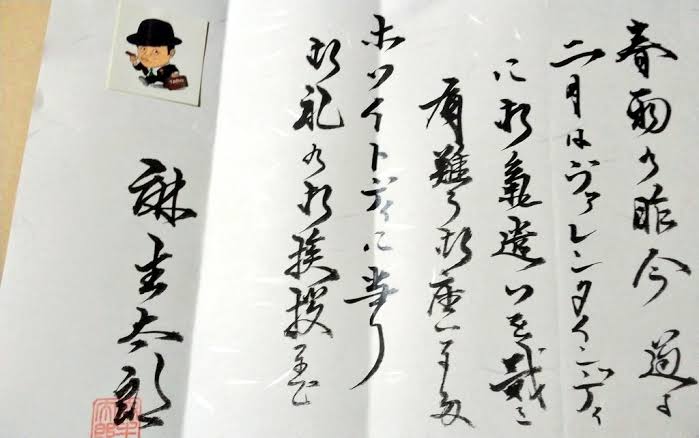 春雨の昨今 過る
二月はヴァレンタインディ
に御氣遣いを戴き
有難う御座いました
ホワイトディに当り
御礼の御挨拶まで
麻生太郎